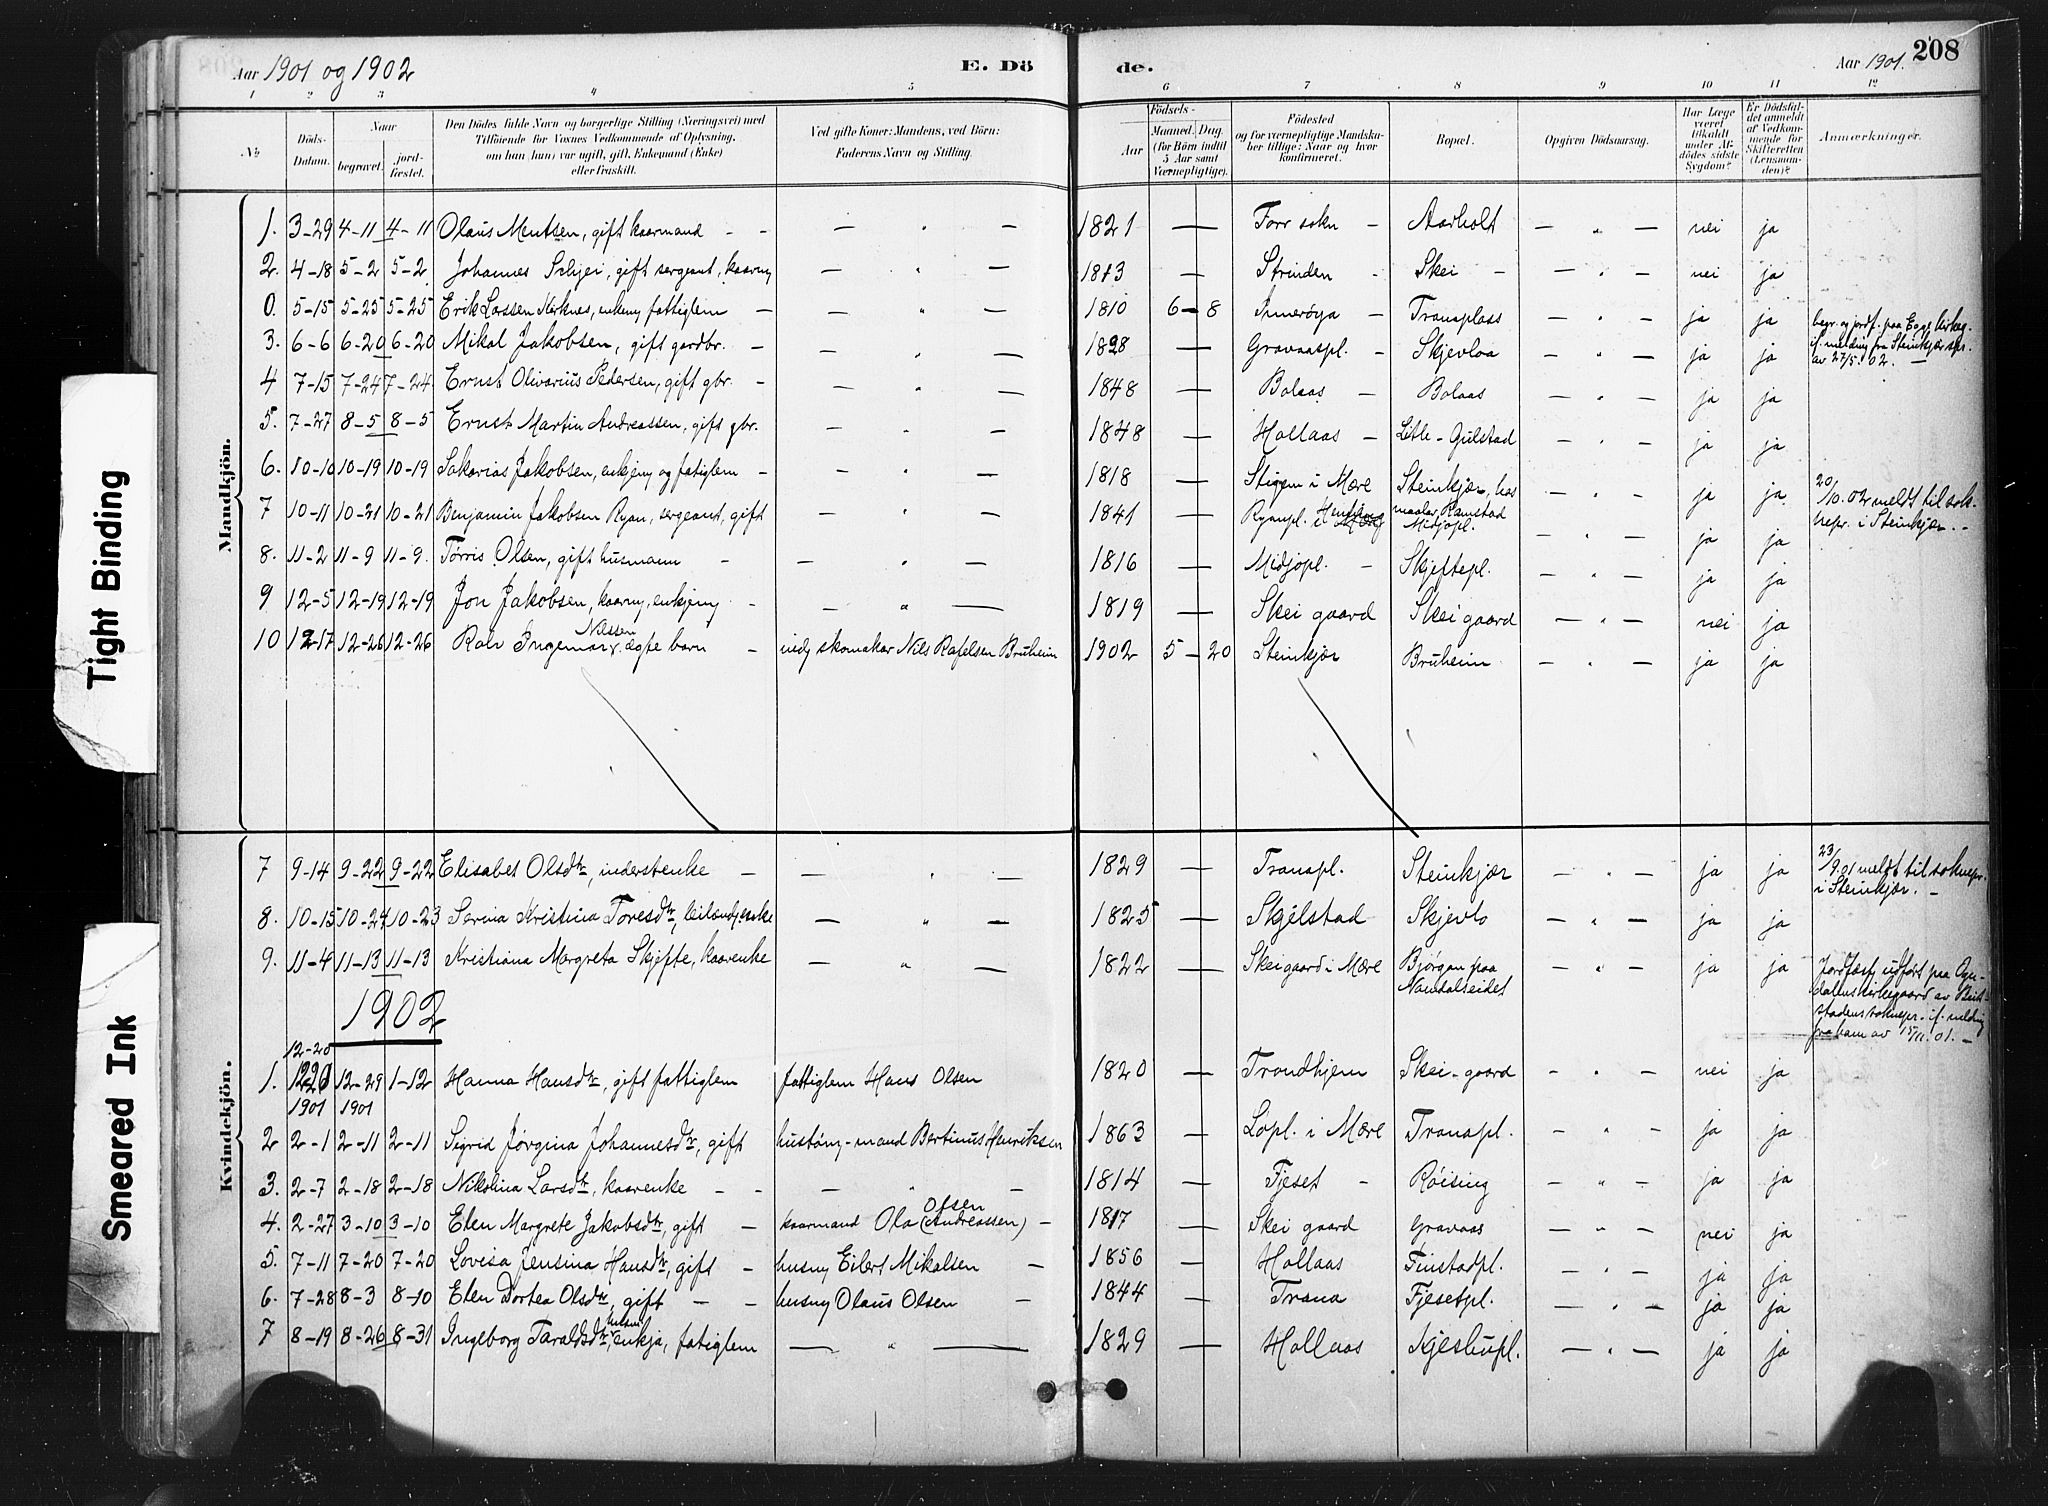 Aar 1901 og 1902
E. Dö
de.
Aar 1901.
208
1 2 3 4 5 6 7 8 9 10 11 12
No
Döds-
Datum.
Naar
begravet.
jord-
fæstet.
Den Dödes fulde Navn og borgerlige Stilling (Næringsvei) med
Tilföiende for Voxnes Vedkommende af Oplysning,
om han (hun) var ugift, gift, Enkemand (Enke)
eller fraskilt.
Ved gifte Koner: Mandens, ved Börn:
Faderens Navn og Stilling.
Födsels-
Aar
Maaned. Dag.
(for Börn indtil
5 Aar samt
Værnepligtige).
Födested
og for værnepligtige Mandska-
ber tillige: Naar og hvor
konfirmeret.
Bopæl.
Opgiven Dödsaarsag.
Har Læge
været
tilkaldt
under Af-
dödes sidste
Sygdom?
Er Dödsfal-
det anmeldt
af Vedkom-
mende for
Skifteretten
(Lensman-
den)?
Anmærkninger.
Mandkjön.
1. 3-29 4-11 4-11 Olaus Mentsen, gift kaarmand - - — " — 1821 — Forr sokn - Aarholt — " — nei ja
2. 4-18 5-2 5-2 Johannes Schjei, gift sergeant, kaarmg — " — 1813 — Strinden - Skei - — " — nei ja
0. 5-15 5-25 5-25 Erik Larssen Kirknes, enkemg fattiglem — — " — 1810 6-8 Inderøya - Tranaplass — " — ja ja begr. og jordf. paa Egge kirkeg.
if. melding fra Steinkjær spr.
av 27/5. 02. —
3. 6-6 6-20 6-20 Mikal Jakobsen, gift gardbr. - — " — 1828 — Gravaaspl. - Skjevloa — " — ja ja
4 7-15 7-24 7-24 Ernst Olivarius Pedersen, gift gbr. - — " — 1848 — Bolaas - Bolaas — " — ja ja
5. 7-27 8-5 8-5 Ernst Martin Andreassen, gift gbr. — " — 1848 — Hollaas - Litle-Gulstad — " — ja ja
6. 10-10 10-19 10-19 Sakarias Jakobsen, enkjemg og fatiglem - — " — 1818 — Stigem i Mære Steinkjær, hos
maalar Ramstad — " — ja ja 20/10. 02 meldt til sok-
nepr. i Steinkjær. -
7 10-11 10-21 10-21 Benjamin Jakobsen Ryan, sergeant, gift — " — 1841 — Ryanpl. i Midjopl. — " — ja ja
8. 11-2 11-9 11-9. Tørris Olsen, gift husmann - — " — 1816 — Midjopl. - Skjeftepl. — " — ja ja
9 12-5 12-19 12-19 Jon Jakobsen, kaarmg, enkjemg - — " — 1819 — Skei gaard Skei gaard — " — nei ja
10 12-17 12-26 12-26 Rolv Ingemar Nilssen ægte barn - indg skomakar Nils Rafelsen Bruheim 1902 5-20 Steinkjør Bruheim — " — ja ja
Kvindekjön.
7 9-14 9-22 9-22 Elisabet Olsdtr, inderstenke — — " — 1829 — Tranapl. Steinkjær — " — ja ja 23/9.01 meldt til soknepr.
i Steinkjær. —
8. 10-15 10-24 10-23 Serina Kristina Toresdtr, — " — 1825 — Skjelstad Skjevlo — " — ja ja
9. 11-4 11-13 11-13 Kristiana Margreta Skjefte, kaarenke — " — 1822 — Skeigaard i Mære Bjørgan paa
Namdalseidet — " — ja ja Jordfæstg udført paa Ogn-
dalens kirkegaard av Beit-
stadens soknepr. if. melding
fra ham av 15/11. 01. —
1902
12-20
1. 1220 12-29 1-12 Hanna Hansdtr, gift fattiglem fattiglem Hans Olsen 1820 — Trondhjem Skei-gaard — " — nei ja
1901 1901
2 2-1 2-11 2-11 Sigrid Jørgina Johannesdtr, gift hustømr-mand Bertinus Henriksen 1863 — Lopl. i Mære Tranapl. — " — ja ja
3. 2-7 2-18 2-18 Nikolina Larsdtr, kaarenke - - — " — 1814 — Fjeset - Røising — " — ja ja
4. 2-27 3-10 3-10 Elen Margrete Jakobsdtr, gift - kaarmand Ola Olsen (Andreassen) - 1817 — Skei gaard Gravaas — " — nei ja
5. 7-11 7-20 7-20 Lovisa Jensina Hansdtr, gift - husmg Eilert Mikalsen - 1856 — Hollaas Finstadpl. — " — ja ja
6. 7-28 8-3 8-10 Elen Dortea Olsdtr, gift - - husmg Olaus Olsen - 1844 — Trana Fjesetpl. — " — ja ja
7 8-19 8-26 8-31 Ingeborg Taraldsdtr, husm enkja, fatiglem — " — 1829 — Hollaas Kjeshupl. — " — ja ja
Tight Binding
Smeared Ink